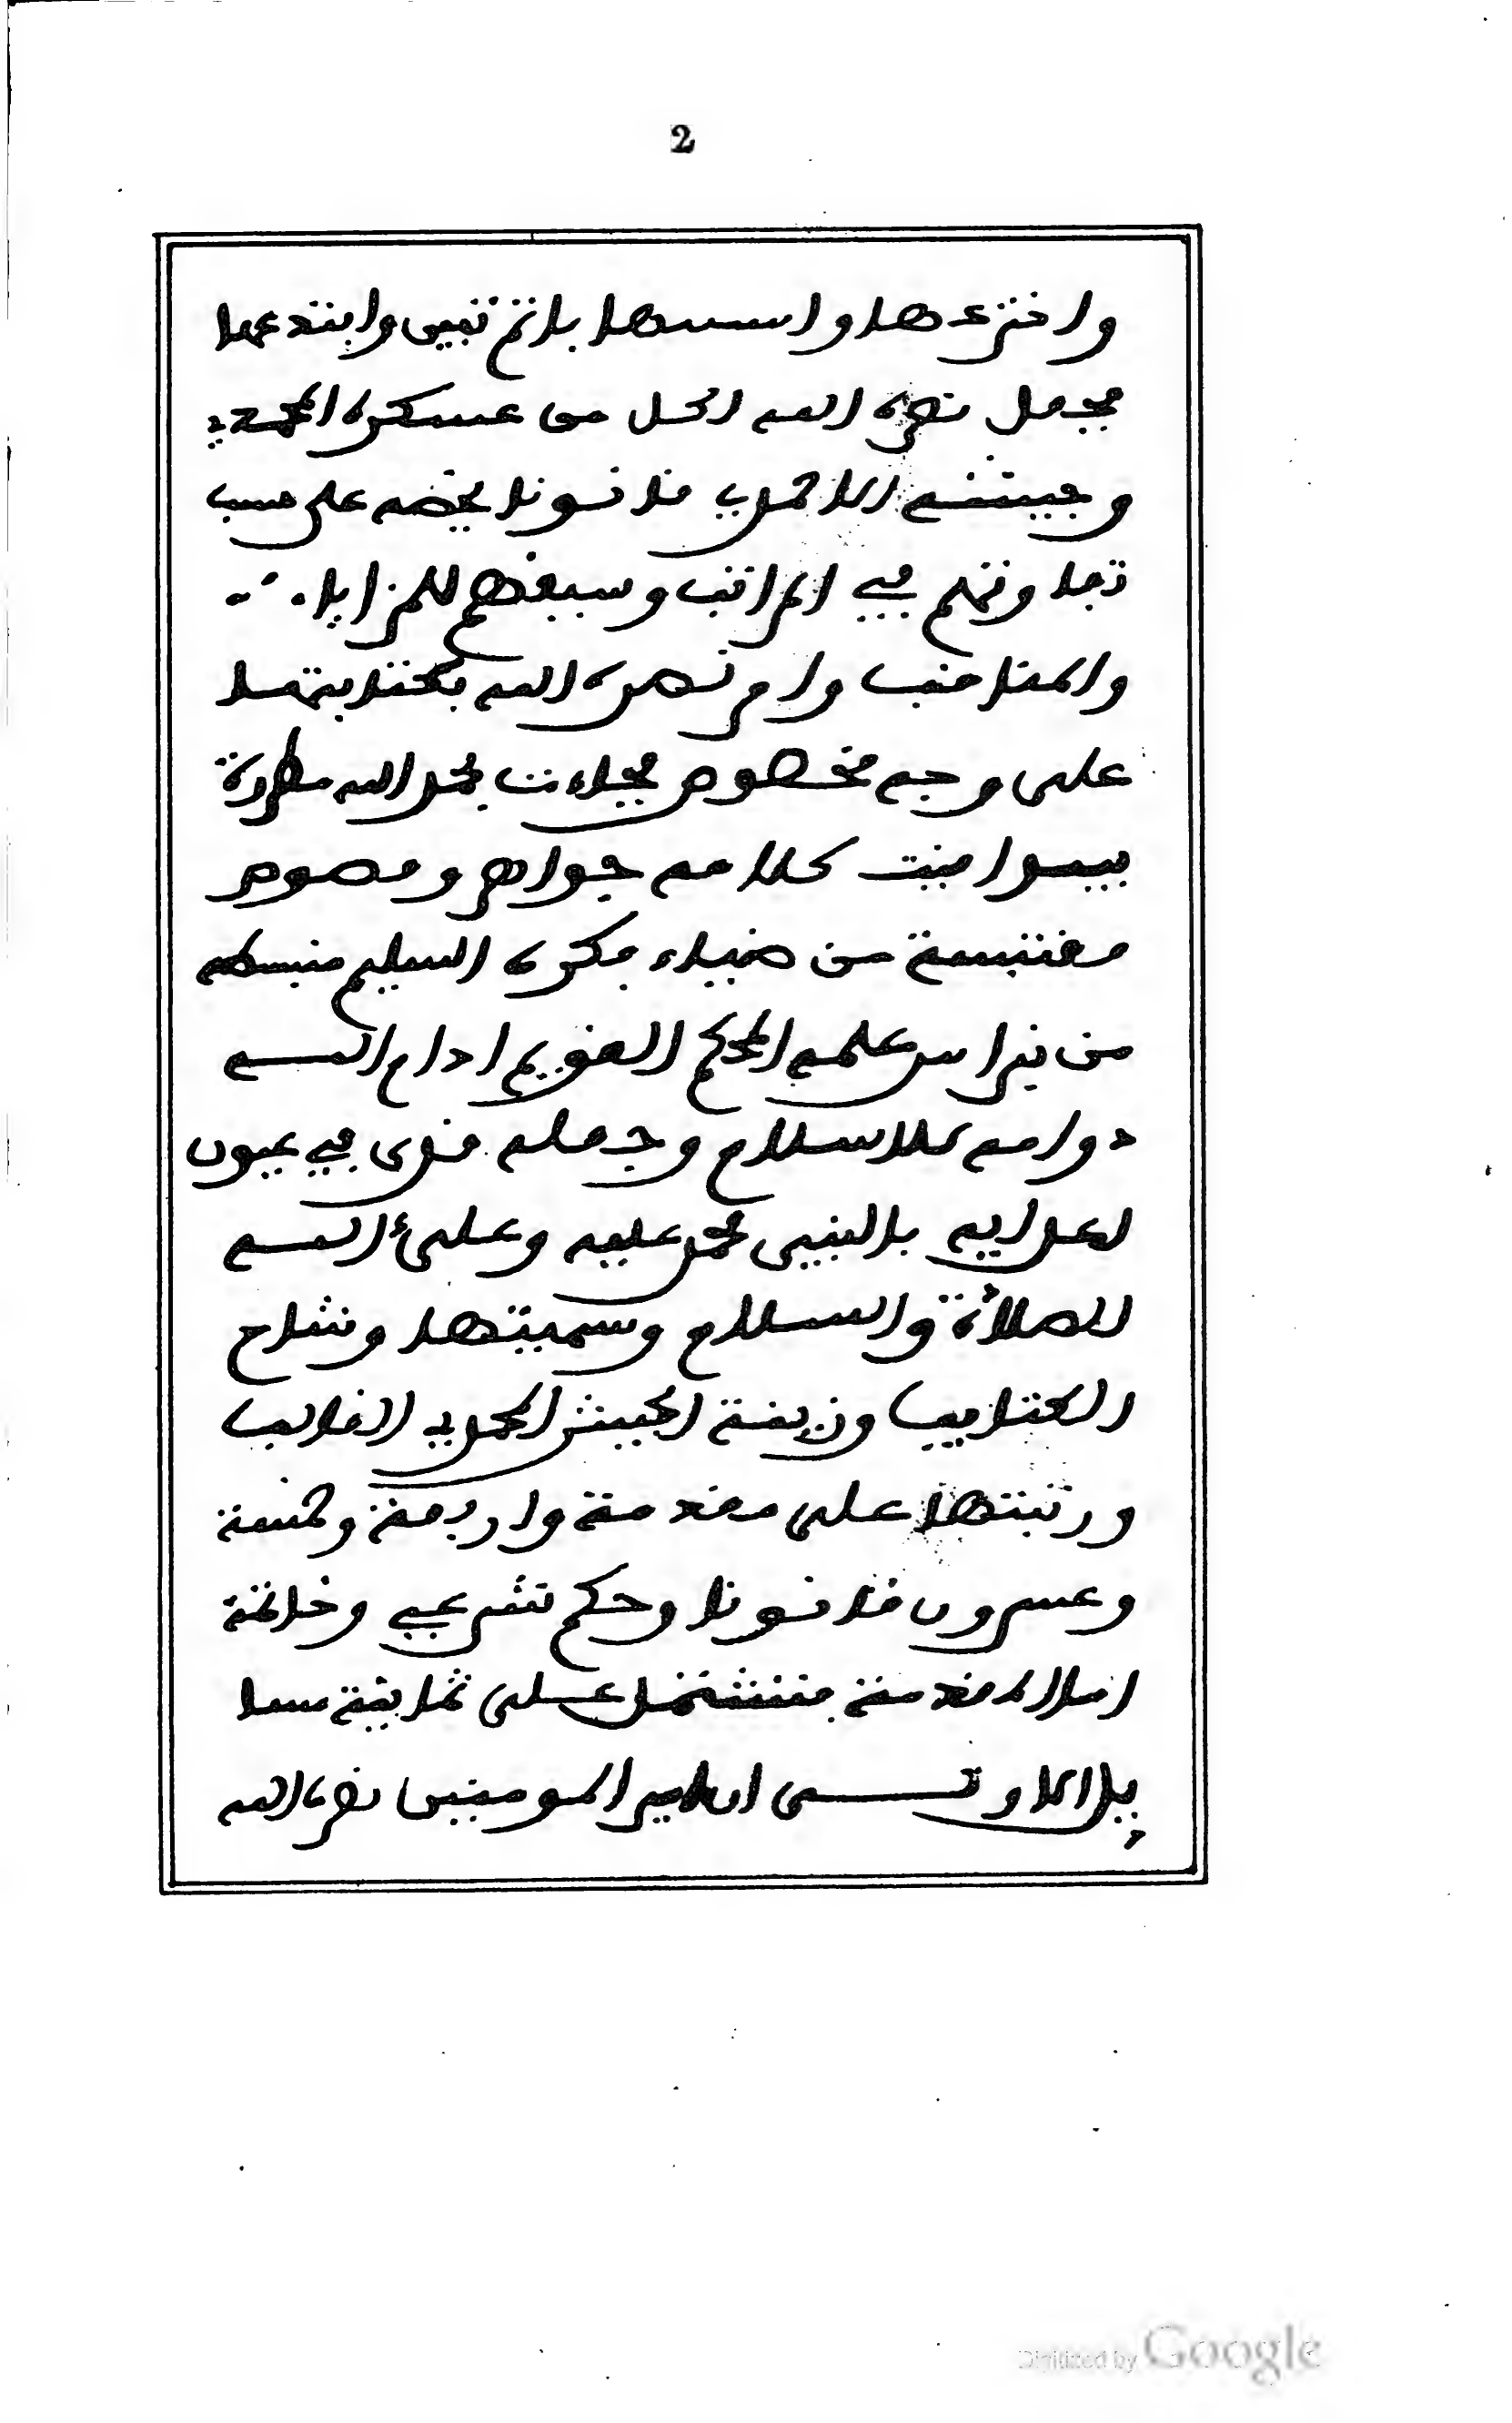 2
واخترعها واسسها باتم تبيين وابتدعها
فجعل نصره الله لكل من عسكره المحمدي
وجيشه الاحمدي قانونا يخصه على حسب
تفاوتهم في المراتب وسبقهم للمزايا
والمناصب وامر نصره الله بكتابتها
على وجه مخصوص فجاءت بحمد الله مطرزة
بيواقيت كلامه جواهر وفصوص
مقتبسة من ضياء فكره السليم منبسطه
من نبراس علمه المحكم القويم ادام الله
دوامه للاسلام وجعله قذى في عيون
اعدايه بالنبي محمد عليه وعلى ءاله
الصلاة والسلام وسميتها وشاح
الكتايب وزينة الجيش المحمدي الغالب
ورتبتها على مقدمة واربعة وخمسة
وعسرون قانونا وحكم تشريعي وخاتمة
اما المقدمة فتشتمل على ثمانية مسا
يل الاوتسى ان امير المومنين نصره الله
Digitized by Google